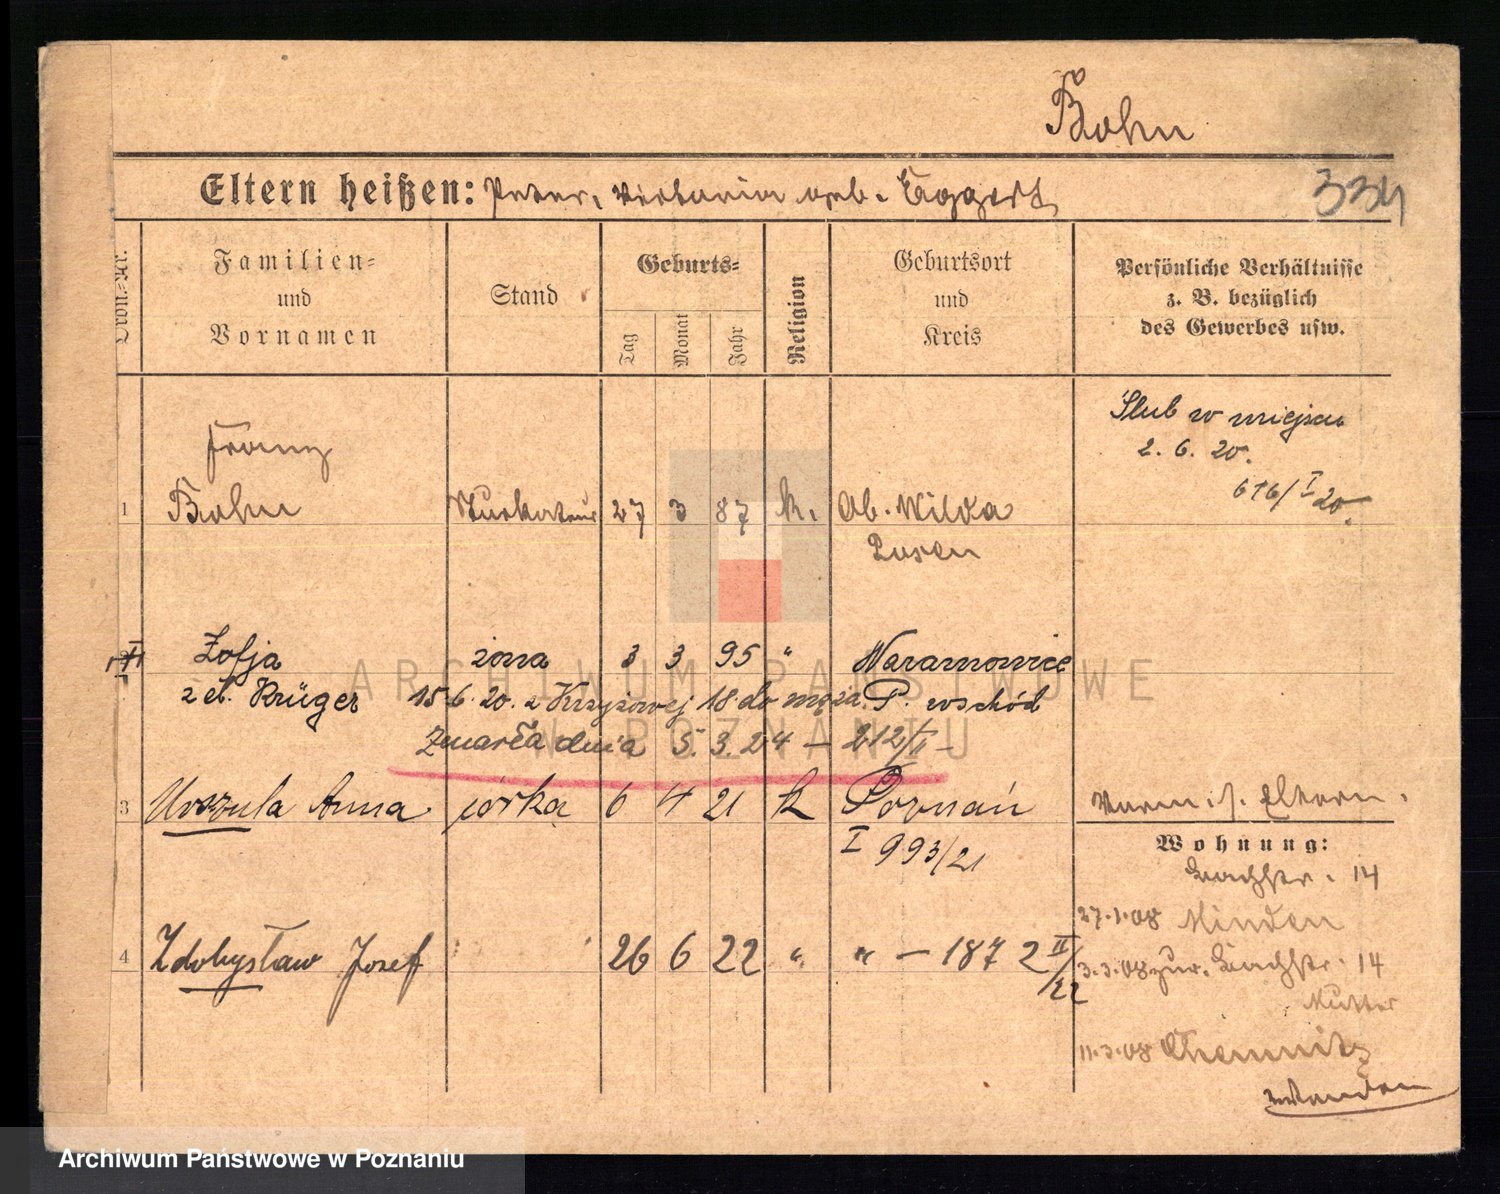 Bohn
Eltern heißen: Peter, Viktoria geb. Eggert
334
Familien=
und
Vornamen
Stand
Geburts=
Tag
Monat
Jahr
Religion
Geburtsort
und
Kreis
Persönliche Verhältnisse
z. B. bezüglich
des Gewerbes usw.
Ślub w miejscu
2. 6. 20.
616/I 20
Franz
1 Bohn Stukateur 27 3 87 k. Ob. Wilda
Posen
Zofja żona 3 3 95 " Naramowice
z d. Krüger 15.6.20. z Krzyżowej 18 do męża P. wschód
Zmarła dnia 5. 3. 24 — 212/II —
3 Urszula Anna córka 6 4 21 k Poznań
I 993/21
Vorm. s. Eltern.
Wohnung:
Bachstr. 14
27.1.08 Minden
4 Zdobysław Józef 26 6 22 " " — 187 2 II/22
3.3.08 zur. Bachstr. 14
Mutter
11.3.08 Chemnitz
ARCHIWUM PAŃSTWOWE
W POZNANIU
Archiwum Państwowe w Poznaniu